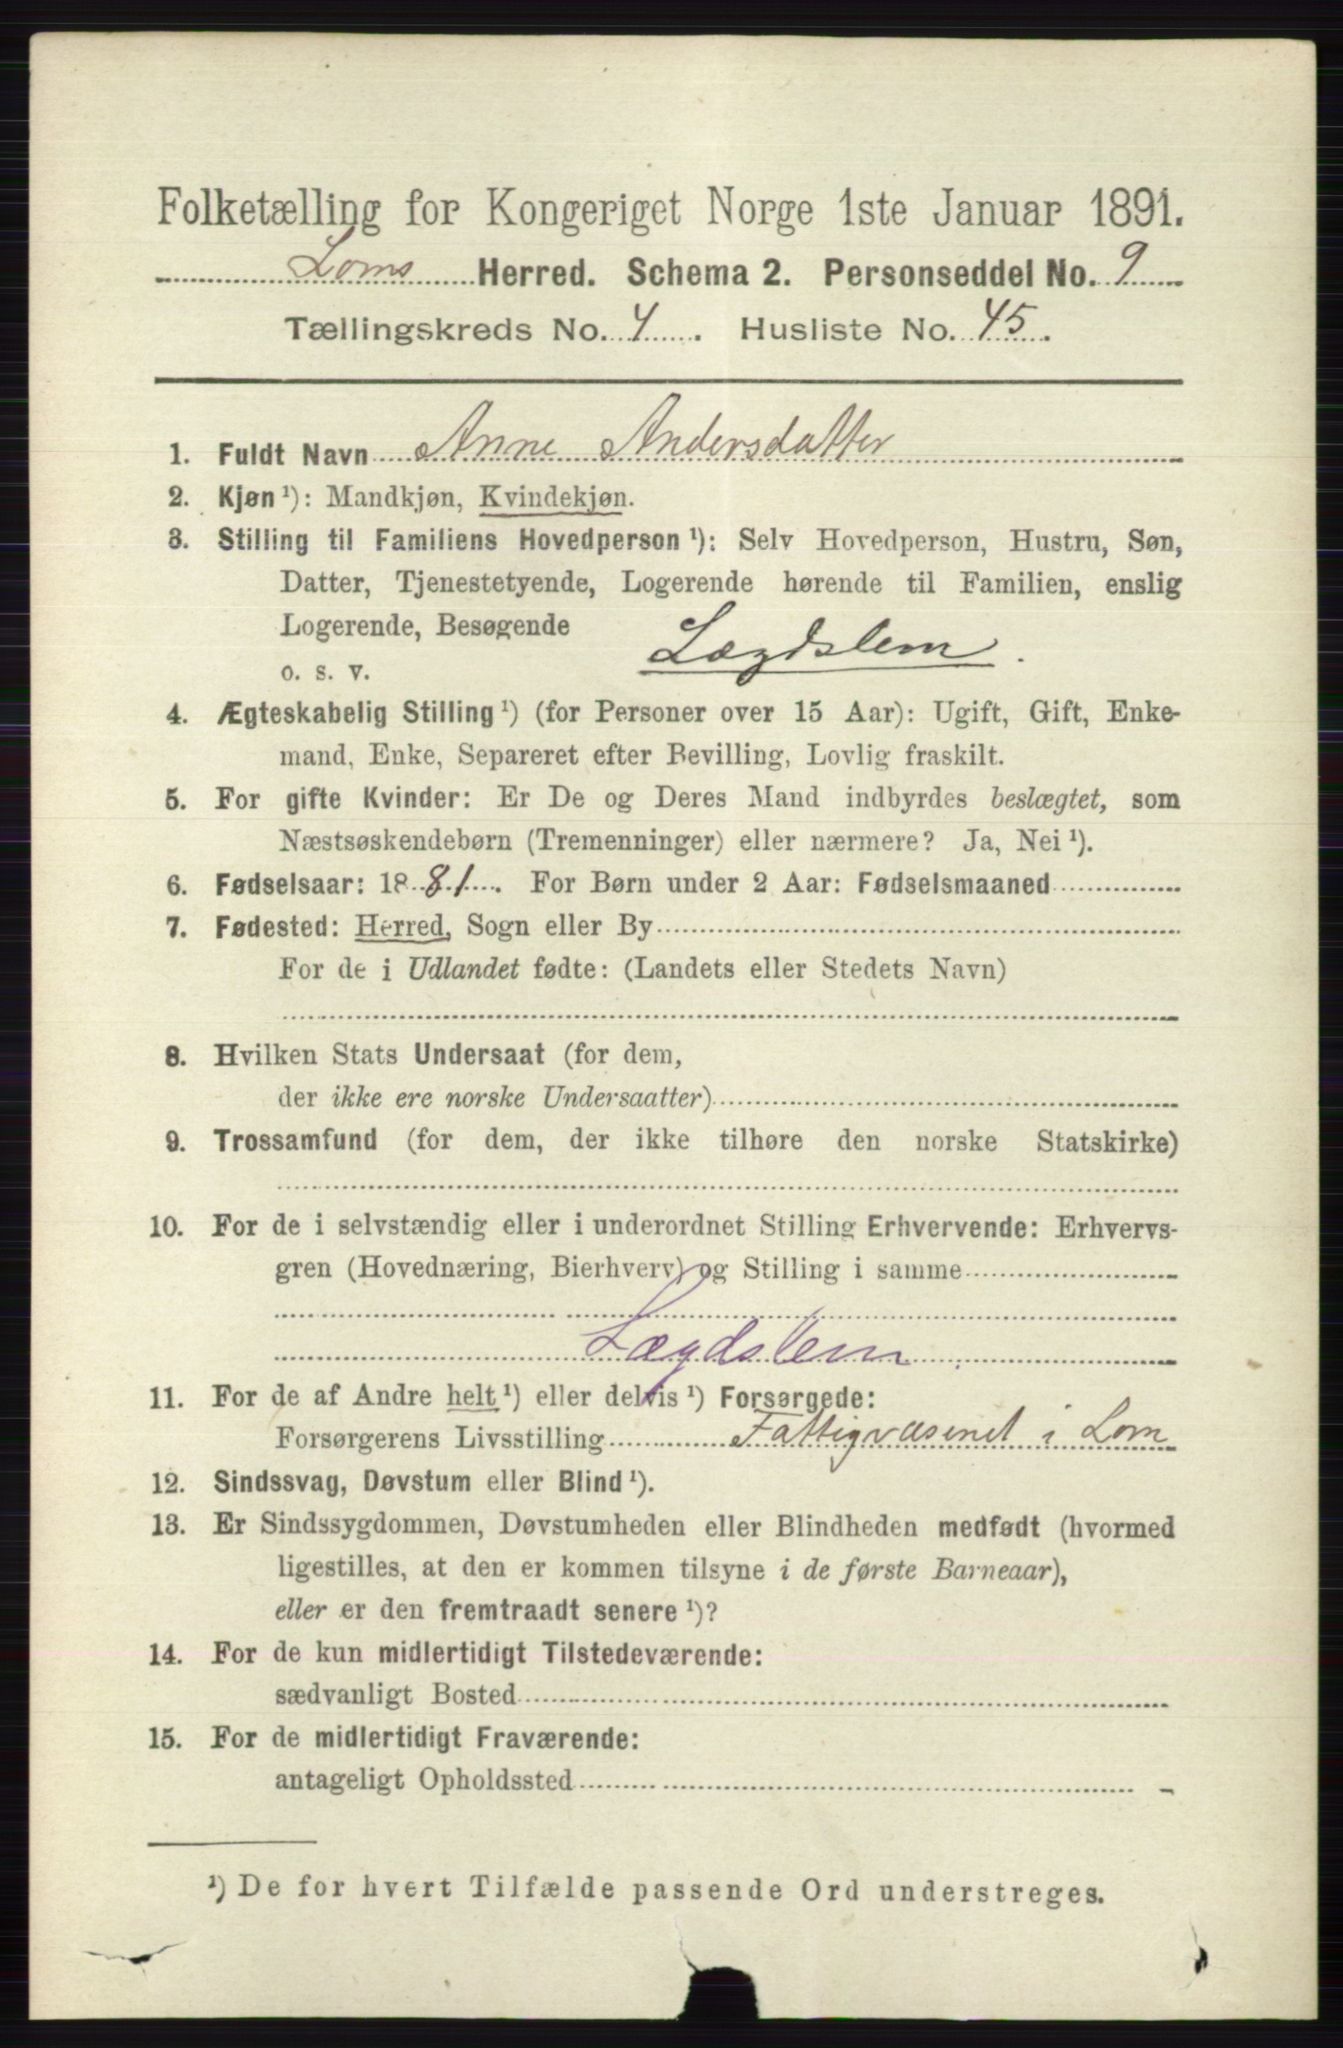 Folketælling for Kongeriget Norge 1ste Januar 1891.
Loms Herred. Schema 2. Personseddel No. 9
Tællingskreds No. 4. Husliste No. 45.
1. Fuldt Navn Anne Andersdatter
2. Kjøn ¹): Mandkjøn, Kvindekjøn.
3. Stilling til Familiens Hovedperson ¹): Selv Hovedperson, Hustru, Søn,
Datter, Tjenestetyende, Logerende hørende til Familien, enslig
Logerende, Besøgende
o. s. v. Lægdslem.
4. Ægteskabelig Stilling ¹) (for Personer over 15 Aar): Ugift, Gift, Enke-
mand, Enke, Separeret efter Bevilling, Lovlig fraskilt.
5. For gifte Kvinder: Er De og Deres Mand indbyrdes beslægtet, som
Næstsøskendebørn (Tremenninger) eller nærmere? Ja, Nei ¹).
6. Fødselsaar: 1881. For Børn under 2 Aar: Fødselsmaaned
7. Fødested: Herred, Sogn eller By
For de i Udlandet fødte: (Landets eller Stedets Navn)
8. Hvilken Stats Undersaat (for dem,
der ikke ere norske Undersaatter)
9. Trossamfund (for dem, der ikke tilhøre den norske Statskirke)
10. For de i selvstændig eller i underordnet Stilling Erhvervende: Erhvervs-
gren (Hovednæring, Bierhverv) og Stilling i samme
Lægdslem
11. For de af Andre helt ¹) eller delvis ¹) Forsørgede:
Forsørgerens Livsstilling Fattigvæsenet i Lom
12. Sindssvag, Døvstum eller Blind ¹).
13. Er Sindssygdommen, Døvstumheden eller Blindheden medfødt (hvormed
ligestilles, at den er kommen tilsyne i de første Barneaar),
eller er den fremtraadt senere ¹)?
14. For de kun midlertidigt Tilstedeværende:
sædvanligt Bosted
15. For de midlertidigt Fraværende:
antageligt Opholdssted
¹) De for hvert Tilfælde passende Ord understreges.